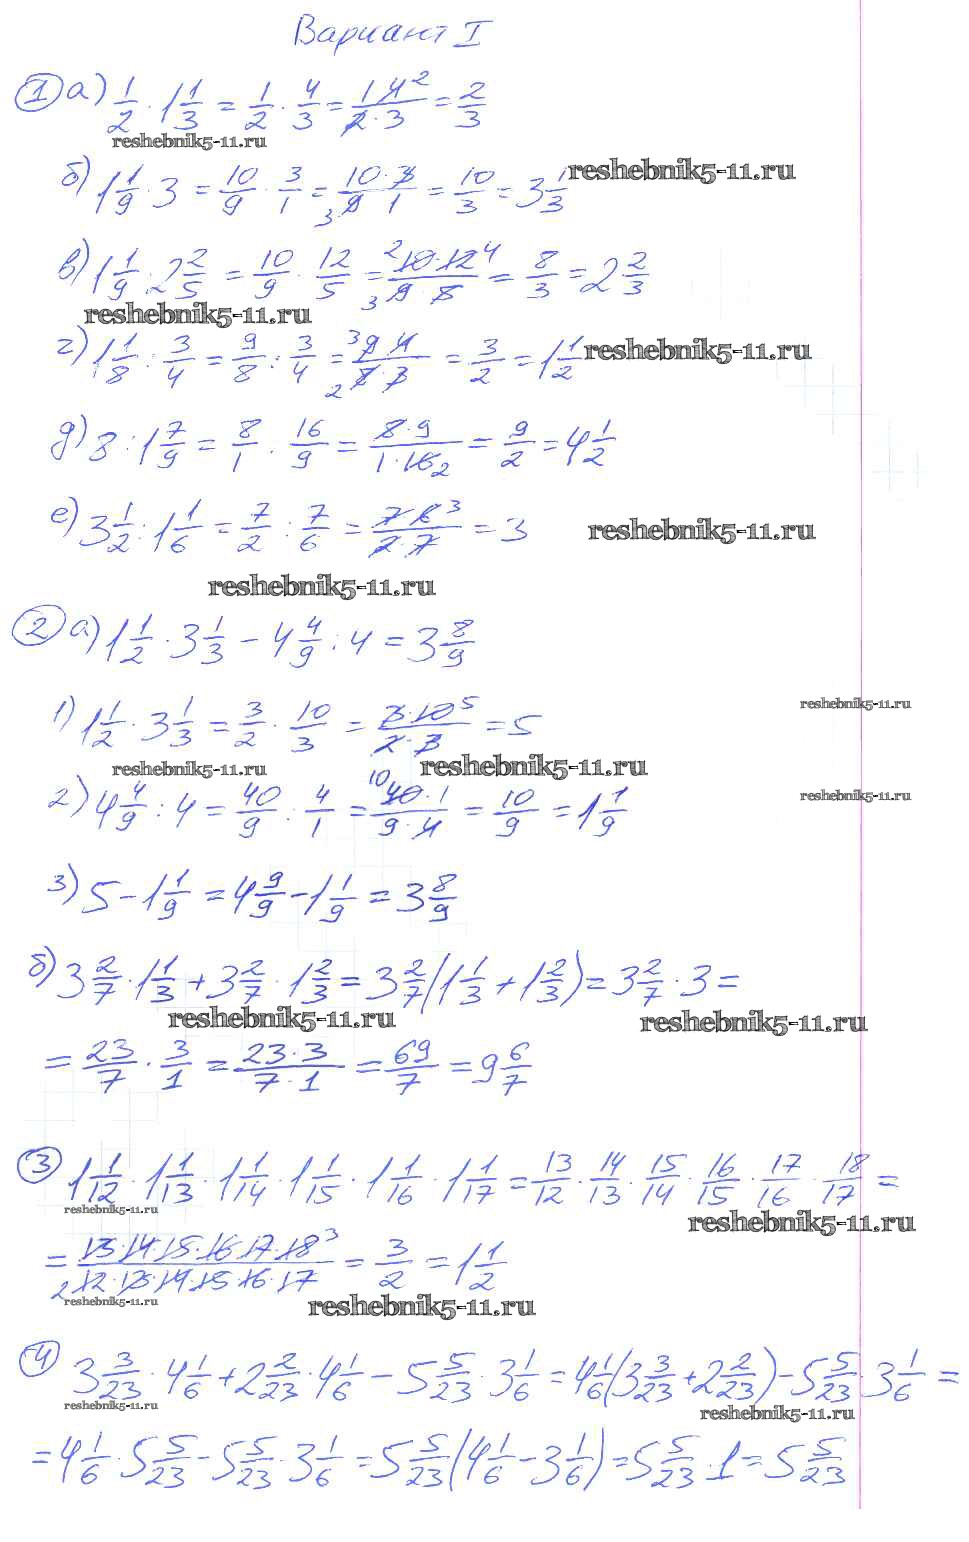 Вариант I
1 а) 1/2 · 1 1/3 = 1/2 · 4/3 = 1·4²/2·3 = 2/3
reshebnik5-11.ru
б) 1 1/9 · 3 = 10/9 · 3/1 = 10·3/₃9·1 = 10/3 = 3 1/3 reshebnik5-11.ru
в) 1 1/9 · 2 2/5 = 10/9 · 12/5 = ²10·12⁴/₃9·5 = 8/3 = 2 2/3
reshebnik5-11.ru
г) 1 1/8 : 3/4 = 9/8 : 3/4 = ³9·4/₂8·3 = 3/2 = 1 1/2 reshebnik5-11.ru
д) 8 : 1 7/9 = 8/1 : 16/9 = 8·9/1·16₂ = 9/2 = 4 1/2
е) 3 1/2 : 1 1/6 = 7/2 : 7/6 = 7·6³/2·7 = 3 reshebnik5-11.ru
reshebnik5-11.ru
2 а) 1 1/2 · 3 1/3 − 4 4/9 : 4 = 3 8/9
1) 1 1/2 · 3 1/3 = 3/2 · 10/3 = 3·10⁵/2·3 = 5 reshebnik5-11.ru
reshebnik5-11.ru reshebnik5-11.ru
2) 4 4/9 : 4 = 40/9 : 4/1 = ¹⁰40·1/9·4 = 10/9 = 1 1/9 reshebnik5-11.ru
3) 5 − 1 1/9 = 4 9/9 − 1 1/9 = 3 8/9
б) 3 2/7 · 1 1/3 + 3 2/7 · 1 2/3 = 3 2/7 (1 1/3 + 1 2/3) = 3 2/7 · 3 =
reshebnik5-11.ru reshebnik5-11.ru
= 23/7 · 3/1 = 23·3/7·1 = 69/7 = 9 6/7
3 1 1/12 · 1 1/13 · 1 1/14 · 1 1/15 · 1 1/16 · 1 1/17 = 13/12 · 14/13 · 15/14 · 16/15 · 17/16 · 18/17 =
reshebnik5-11.ru reshebnik5-11.ru
= 13·14·15·16·17·18³/₂12·13·14·15·16·17 = 3/2 = 1 1/2
reshebnik5-11.ru reshebnik5-11.ru
4 3 3/23 · 4 1/6 + 2 2/23 · 4 1/6 − 5 5/23 · 3 1/6 = 4 1/6 (3 3/23 + 2 2/23) − 5 5/23 · 3 1/6 =
reshebnik5-11.ru reshebnik5-11.ru
= 4 1/6 · 5 5/23 − 5 5/23 · 3 1/6 = 5 5/23 (4 1/6 − 3 1/6) = 5 5/23 · 1 = 5 5/23